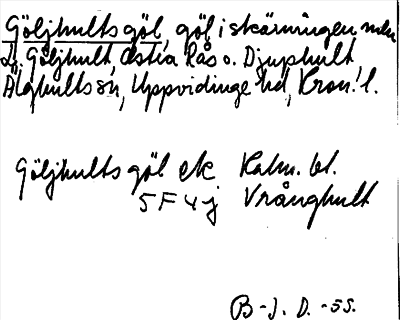 Göljhults göl, göl i skärningen mln
L. Göljhult, Östra Rås o. Djuphult,
Älghults sn, Uppvidinge hd, Kron. l.
Göljhults göl ek Kalm. bl.
5 F 4 j Vrånghult
B-J. D. -55.